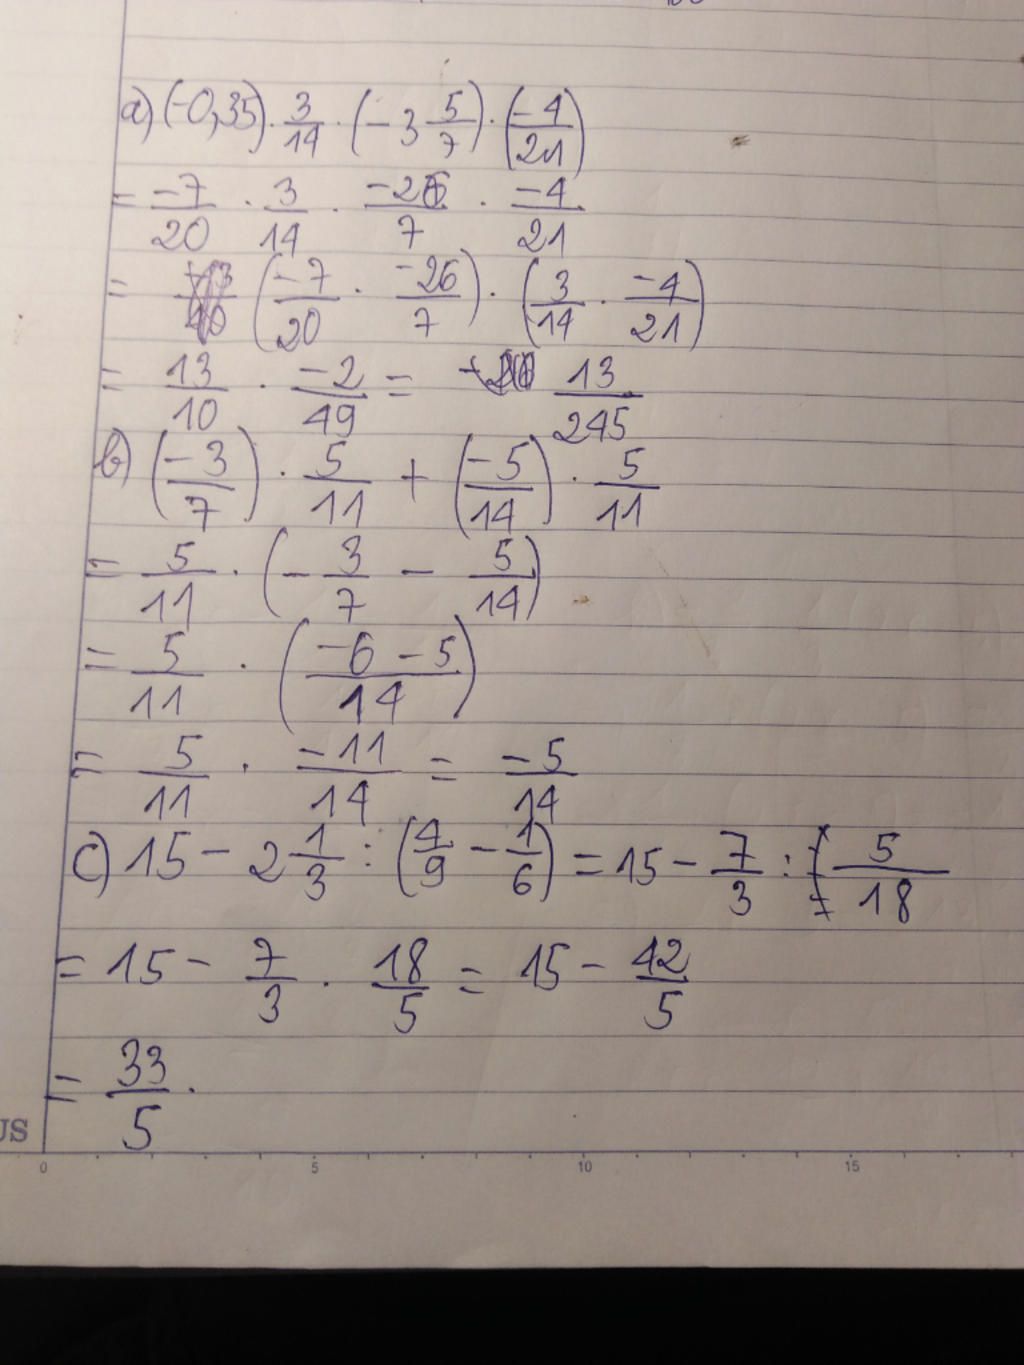 a) (-0,35) · 3/14 · (-3 5/7) · (-4/21)
= -7/20 · 3/14 · -26/7 · -4/21
= (-7/20 · -26/7) · (3/14 · -4/21)
= 13/10 · -2/49 = 13/245
b) (-3/7) · 5/11 + (-5/14) · 5/11
= 5/11 · (-3/7 - 5/14)
= 5/11 · (-6-5/14)
= 5/11 · -11/14 = -5/14
c) 15 - 2 1/3 : (4/9 - 1/6) = 15 - 7/3 : 5/18
= 15 - 7/3 · 18/5 = 15 - 42/5
= 33/5 .
US
0 5 10 15